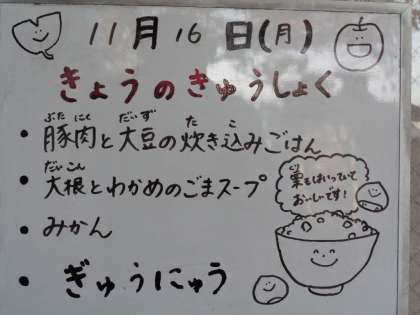 11月16日(月)
きょうのきゅうしょく
ぶた にく だいず た こ
・豚肉と大豆の炊き込みごはん
だいこん
・大根とわかめのごまスープ
・みかん
・ぎゅうにゅう
栗もはいっていて
おいしいです!